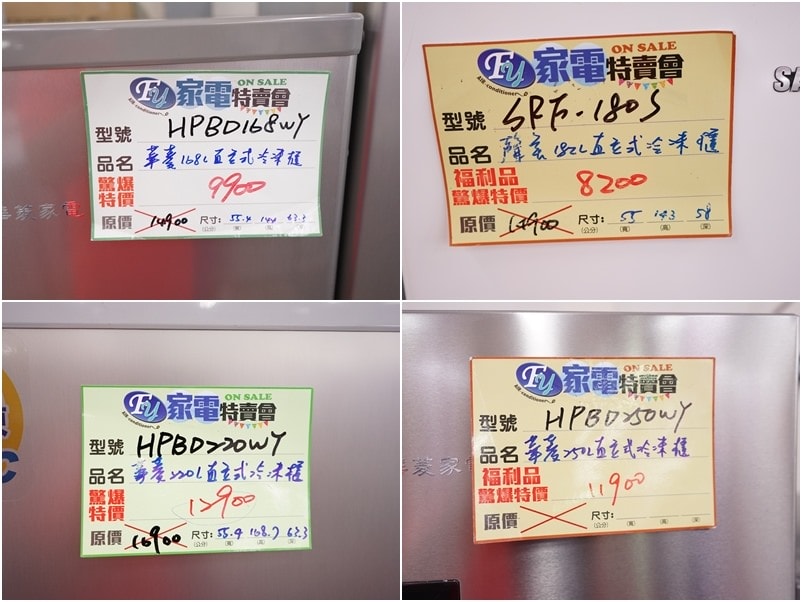 FU 家電特賣會 ON SALE
Air conditioner
型號 HPBD168WY
品名 華菱168L直立式冷凍櫃
驚爆特價 9900
原價 14900 尺寸: 55.4 144 63.3
(公分) (寬) (高) (深)
菱家電
FU 家電特賣會 ON SALE
Air conditioner
型號 SRF-180S
品名 聲寶182L直立式冷凍櫃
福利品
驚爆特價 8200
原價 尺寸: 55 143 58
(公分) (寬) (高) (深)
SA
FU 家電特賣會 ON SALE
Air conditioner
型號 HPBD220WY
品名 華菱220L直立式冷凍櫃
驚爆特價 12900
原價 16900 尺寸: 55.4 168.7 63.3
(公分) (寬) (高) (深)
FU 家電特賣會 ON SALE
Air conditioner
型號 HPBD250WY
品名 華菱250L直立式冷凍櫃
福利品
驚爆特價 11900
原價 尺寸:
(公分) (寬) (高) (深)
菱家電